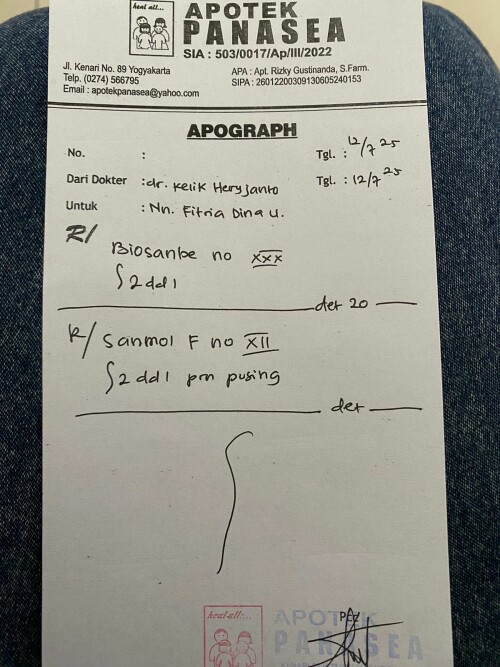 heal all:...
APOTEK
PANASEA
SIA : 503/0017/Ap/III/2022
Jl. Kenari No. 89 Yogyakarta
Telp. (0274) 566795
Email : apotekpanasea@yahoo.com
APA : Apt. Rizky Gustinanda, S.Farm.
SIPA : 26012200309130605240153
APOGRAPH
No. :
Tgl. : 12/7 25
Dari Dokter : dr. Kelik Heryjanto
Tgl. : 12/7 25
Untuk : Nn. Fitria Dina U.
R/ Biosanbe no XXX
∫ 2 dd 1
det 20
R/ Sanmol F no XII
∫ 2 dd 1 prn pusing
det
heal all:...
APOTEK
PCC
PANASEA